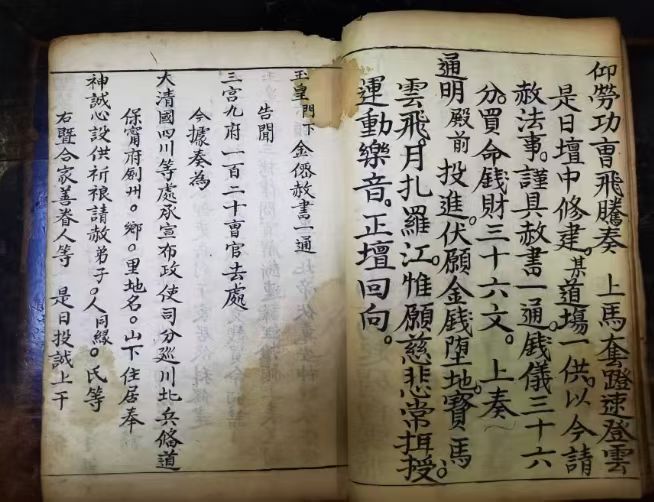 仰勞功曹飛騰奏　上馬奎蹬速登雲
是日壇中修建。某道場一供。以今請
赦法事。謹具赦書一通。錢儀三十六
分。買命錢財三十六文。上奏
通明殿前　投進伏願金錢堕地寶馬
雲飛。月扎羅江。惟願慈悲常揖授
運動樂音。正壇回向。
玉皇門下　金僊赦書一通
告聞
三宫九府一百二十曹官去處
今據奏為
大清國四川等處承宣布政使司分巡川北兵俻道
保甯府劎州。鄉。里地名。山下住居奉
神誠心設供祈禳請赦弟子。人同緣。氏等
右暨合家善眷人等　是日投誠上干